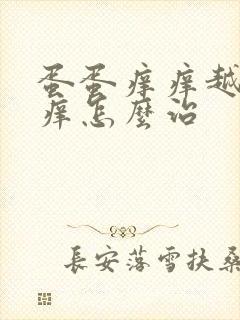 蛋蛋痒痒越
痒怎麼治
長安落雪扶桑